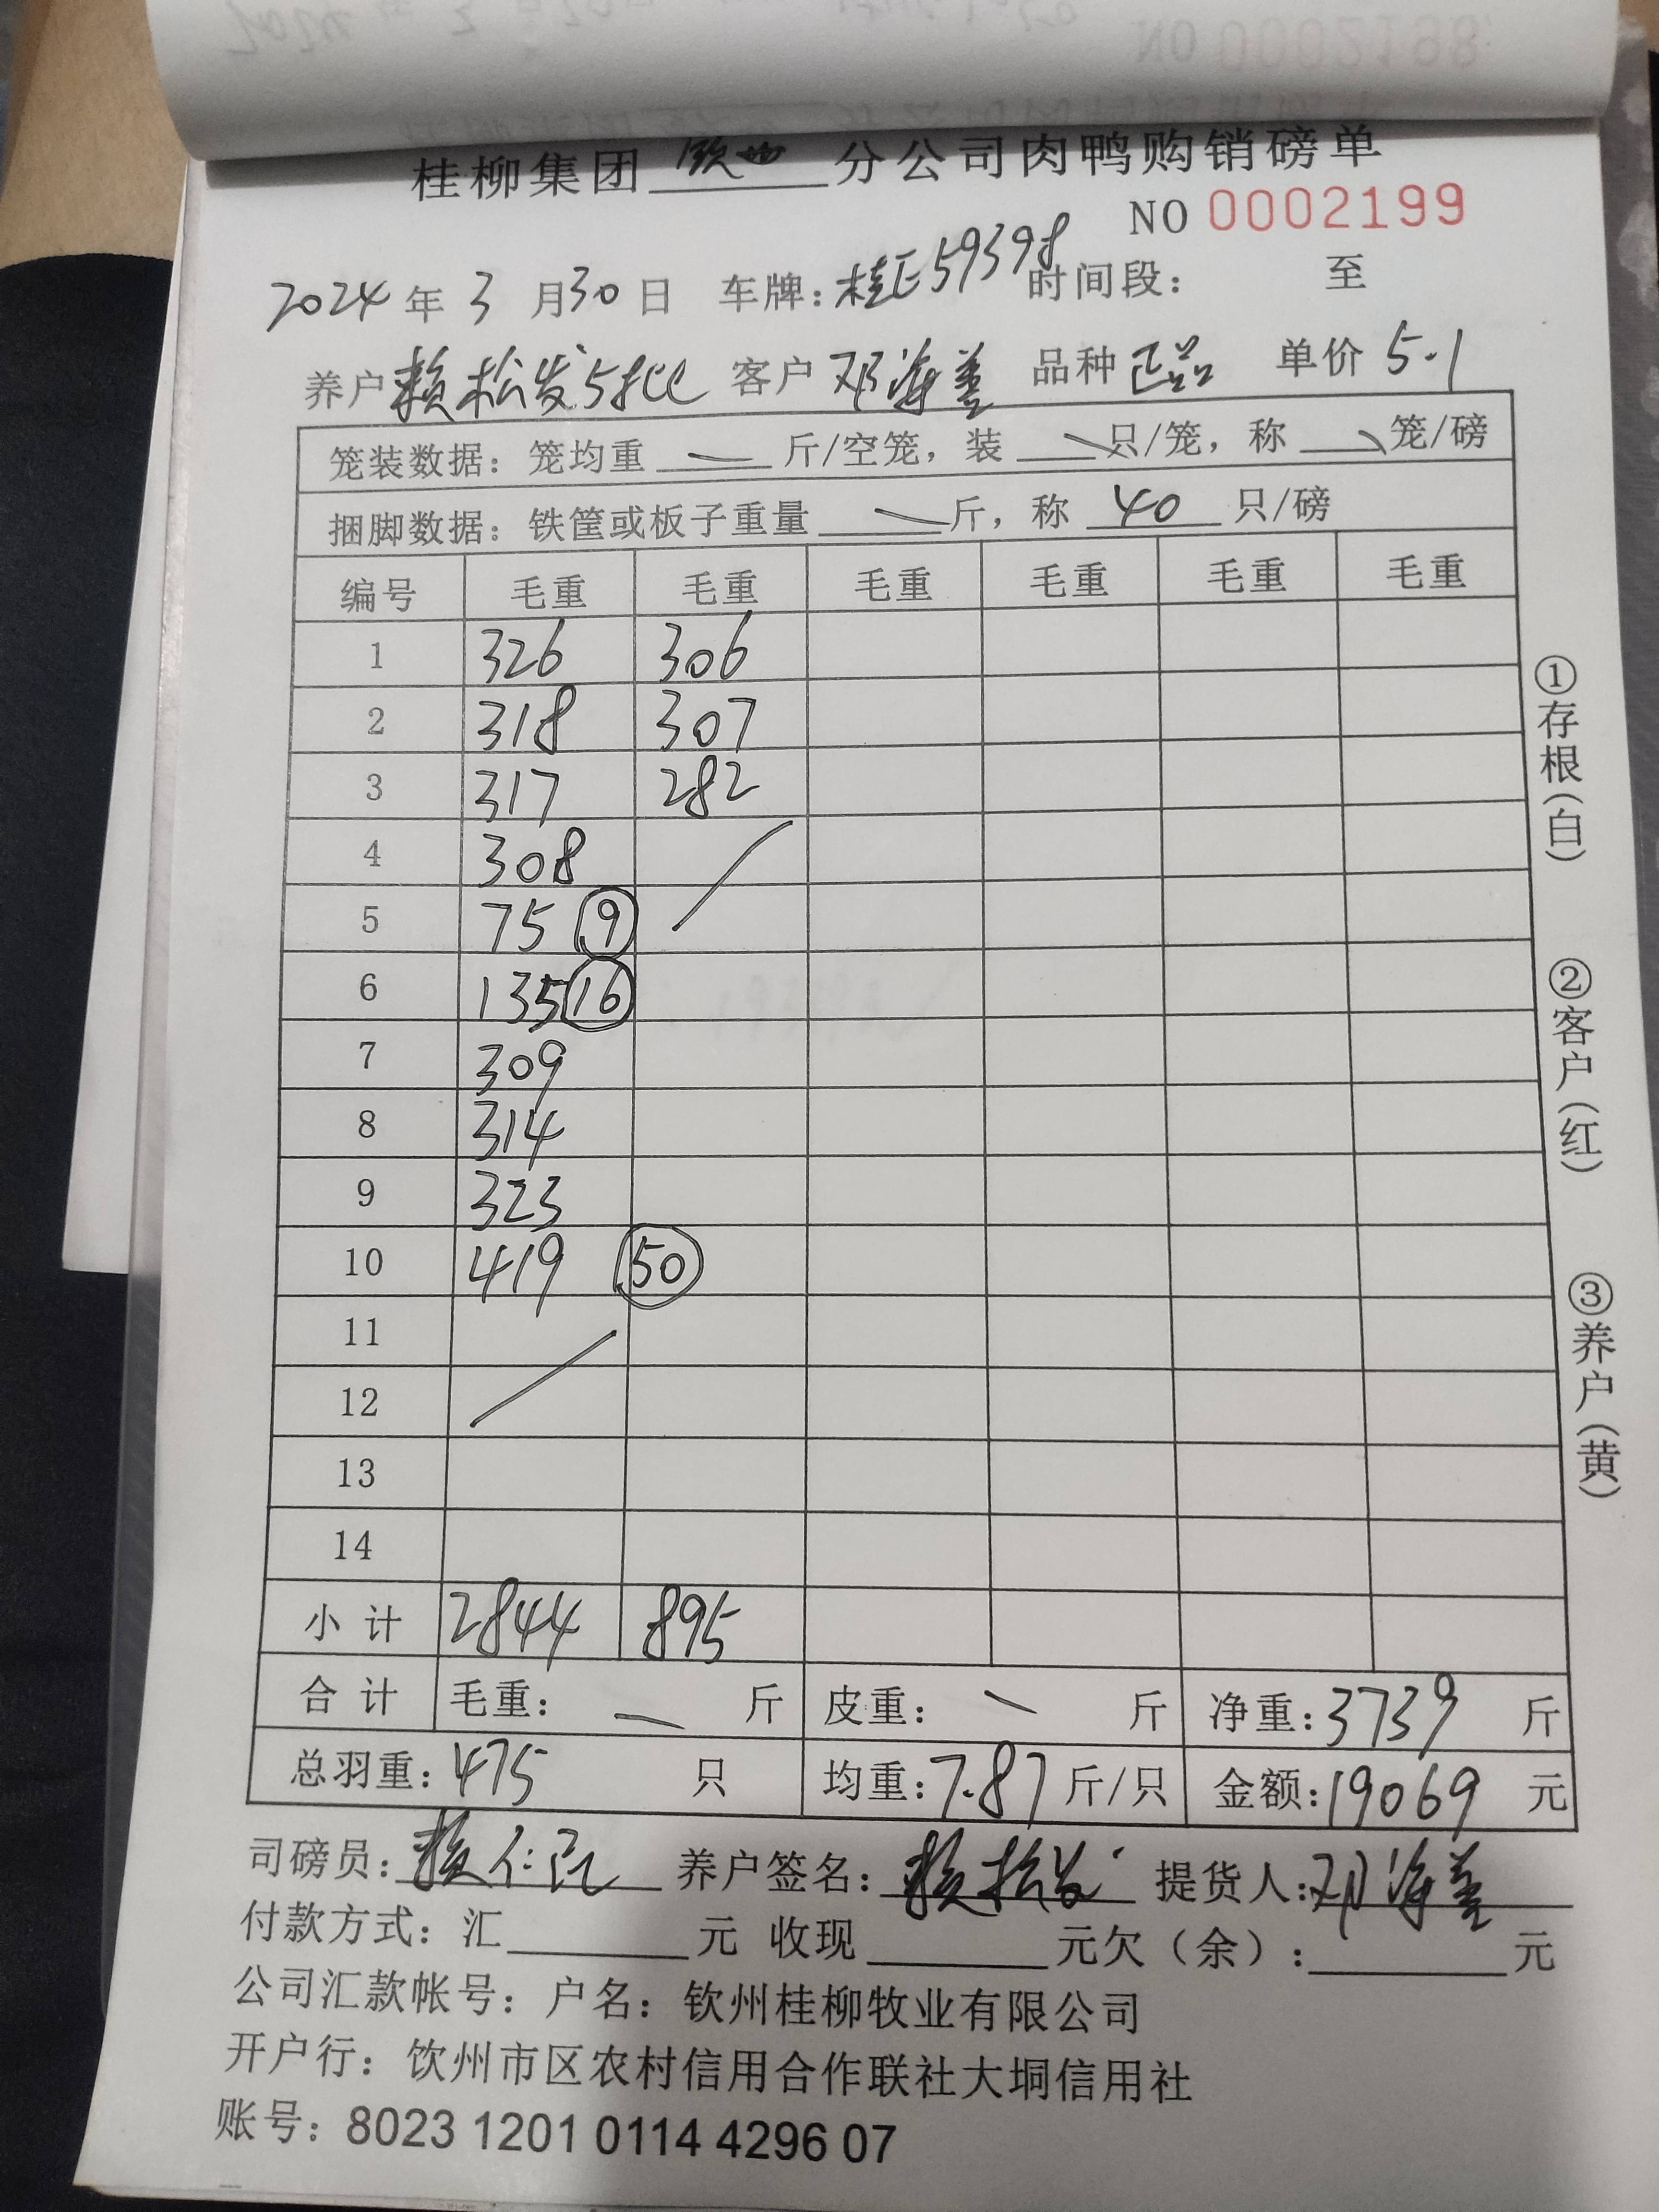 桂柳集团 钦州 分公司肉鸭购销磅单
NO 0002199
2024 年 3 月 30 日 车牌: 桂E59398 时间段: 至
养户 赖松发5批 客户 邓海益 品种 正品 单价 5.1
笼装数据: 笼均重 — 斤/空笼, 装 — 只/笼, 称 — 笼/磅
捆脚数据: 铁筐或板子重量 — 斤, 称 40 只/磅
编号 毛重 毛重 毛重 毛重 毛重 毛重
1 326 306
2 318 307
3 317 282
4 308
5 75 9
6 135 16
7 309
8 314
9 323
10 419 50
11
12
13
14
小 计 2844 895
合 计 毛重: — 斤 皮重: — 斤 净重: 3739 斤
总羽重: 475 只 均重: 7.87 斤/只 金额: 19069 元
司磅员: 养户签名: 赖松发 提货人: 邓海益
付款方式: 汇 元 收现 元欠(余): 元
公司汇款帐号: 户名: 钦州桂柳牧业有限公司
开户行: 钦州市区农村信用合作联社大垌信用社
账号: 8023 1201 0114 4296 07
①存根(白)
②客户(红)
③养户(黄)